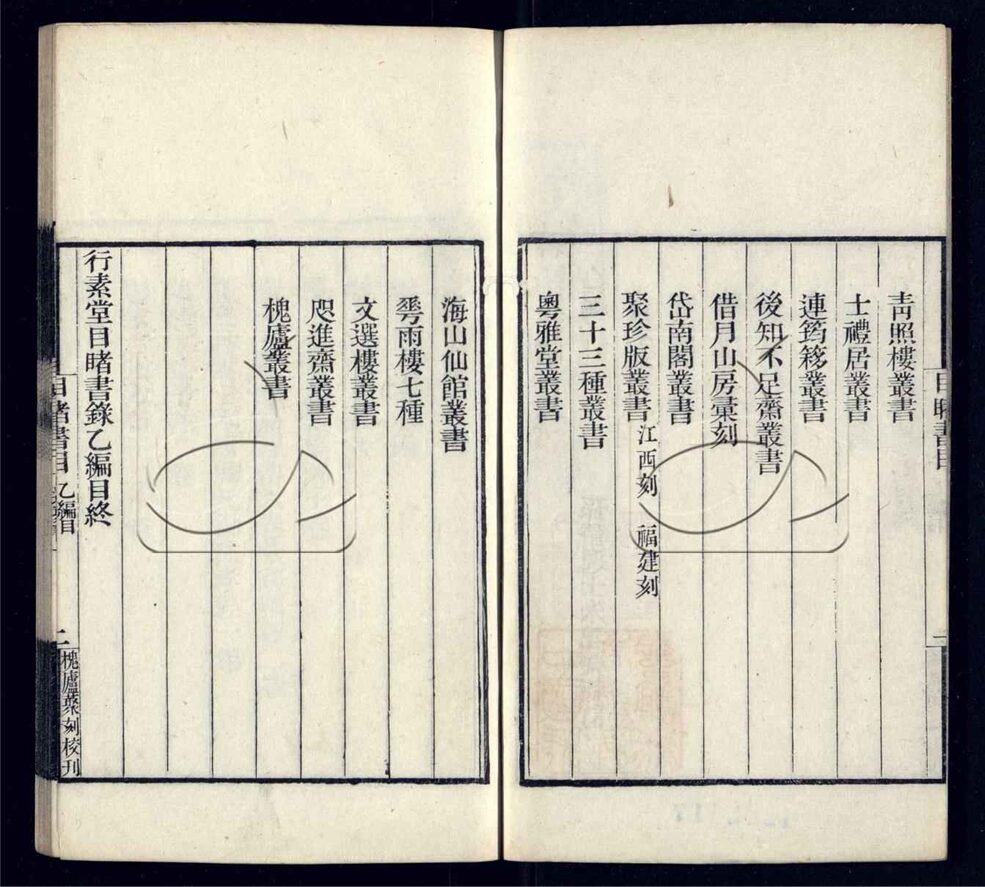 青照樓叢書
士禮居叢書
連筠簃叢書
後知不足齋叢書
借月山房彙刻
岱南閣叢書
聚珍版叢書 江西刻 福建刻
三十三種叢書
粵雅堂叢書
海山仙館叢書
粵雨樓七種
文選樓叢書
咫進齋叢書
槐廬叢書
行素堂目睹書錄乙編目終
目睹書目 乙編目 二 槐廬叢刻校刊